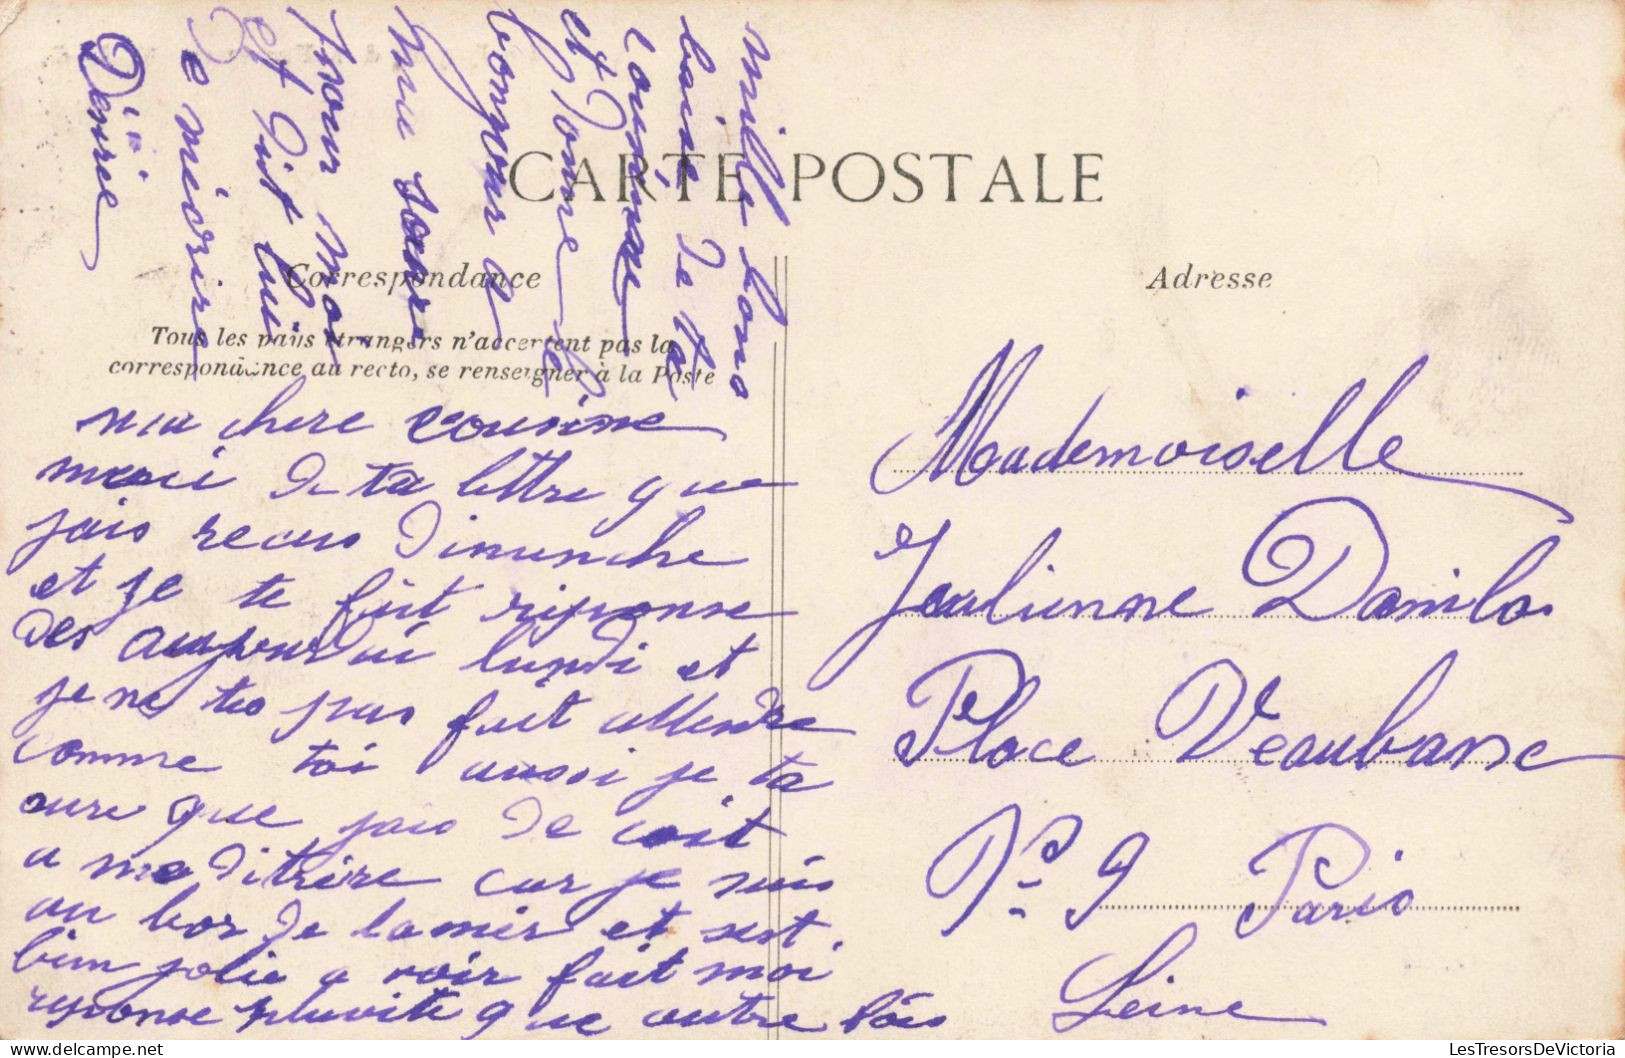 CARTE POSTALE
Correspondance
Adresse
Tous les pays étrangers n'acceptent pas la
correspondance au recto, se renseigner à la Poste
ma chere cousine
merci de ta lettre que
jais recus dimanche
et je te fait reponse
des aujourdui lundi et
je ne tes pas fait attendre
comme toi aussi je ta
sure que jais de coit
a me ditrère car je suis
au bor de lamer et sest
bien jolie a voir fait moi
reponse pluvite que autre fois
mille bons
baisé de ta
cousine
et donne le
bonjour a
ma soeur
pour moi
et dit lui
de mécrire
Désirée
Mademoiselle
Joulienne Danilo
Place Veaubane
No 9 Paris
Seine
LesTresorsDeVictoria